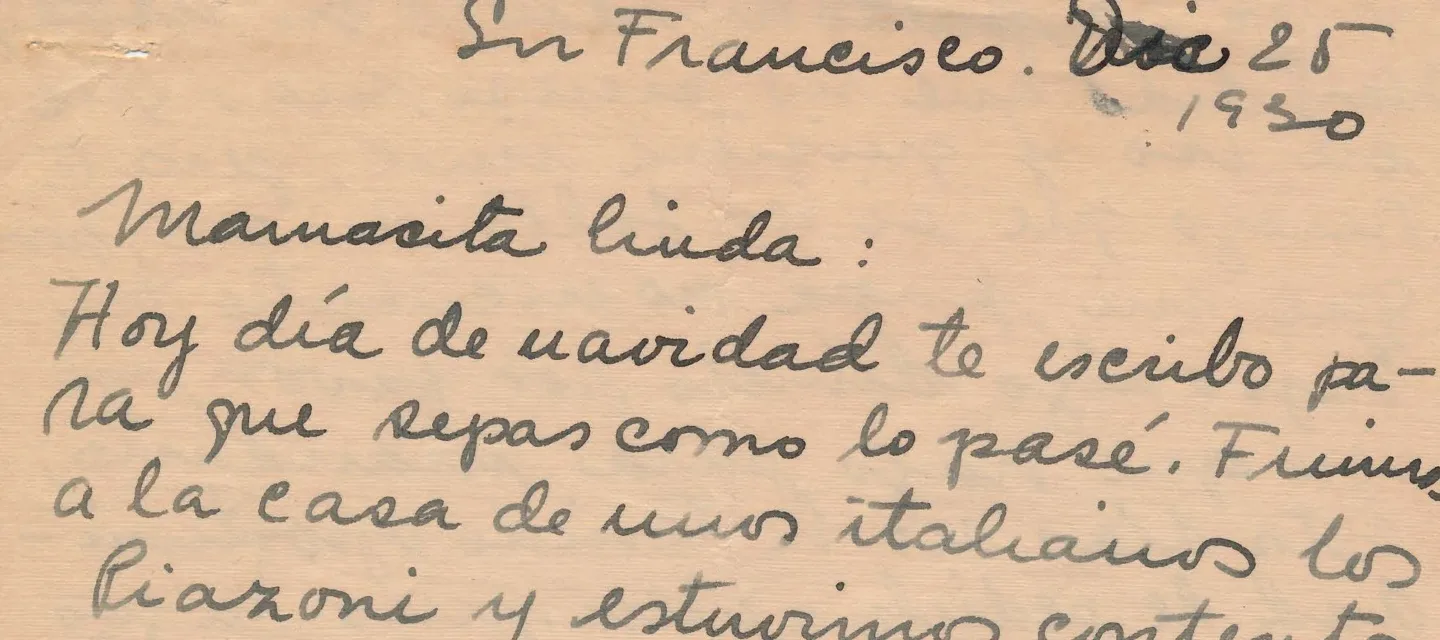 Sn Francisco. Dic 25
1930
Mamacita linda :
Hoy día de navidad te escribo pa-
ra que sepas como lo pasé. Fuimos
a la casa de unos italianos los
Piazoni y estuvimos content